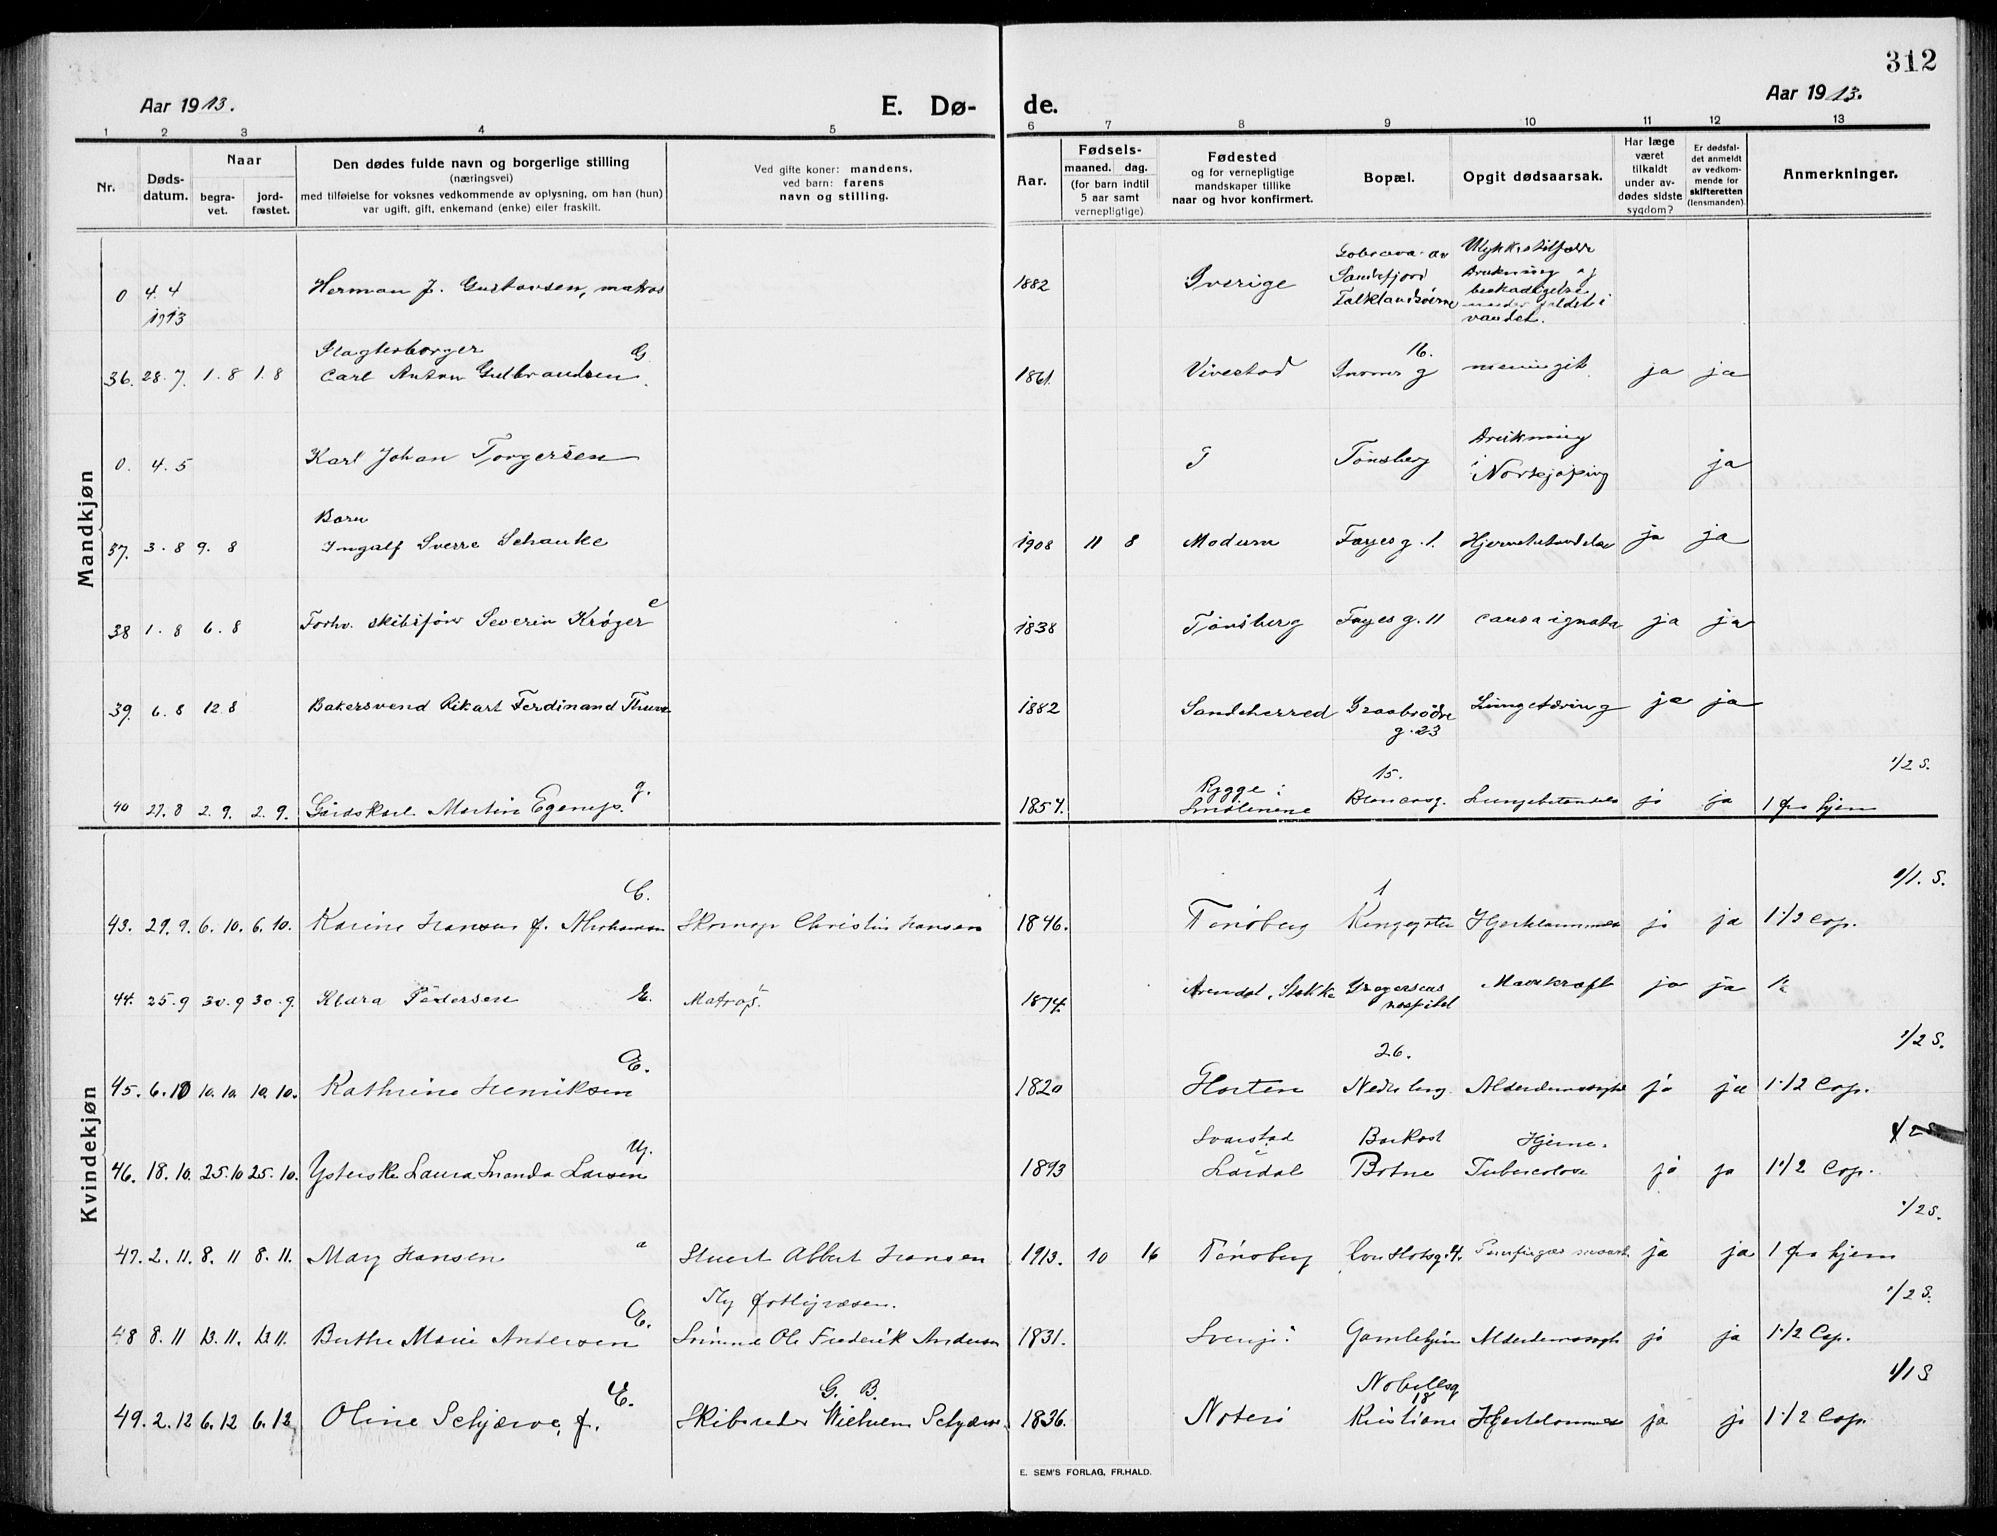 312
Aar 1913.
E. Dø-
de.
Aar 1913.
1 2 3 4 5 6 7 8 9 10 11 12 13
Nr.
Døds-
datum.
Naar
begra-
vet.
jord-
fæstet.
Den dødes fulde navn og borgerlige stilling
(næringsvei)
med tilføielse for voksnes vedkommende av oplysning, om han (hun)
var ugift, gift, enkemand (enke) eller fraskilt.
Ved gifte koner: mandens,
ved barn: farens
navn og stilling.
Aar.
Fødsels-
maaned. dag.
(for barn indtil
5 aar samt
vernepligtige)
Fødested
og for vernepligtige
mandskaper tillike
naar og hvor konfirmert.
Bopæl.
Opgit dødsaarsak.
Har læge
været
tilkaldt
under av-
dødes sidste
sygdom?
Er dødsfal-
det anmeldt
av vedkom-
mende for
skifteretten
(lensmanden).
Anmerkninger.
Mandkjøn
0 4. 4 1913 Herman J. Gustavsen, matros 1882 Sverige Sandefjord Falklandsøerne Ulykkestilfælde Drukning og beskadigelse under faldet i vandet.
36. 28. 7. 1. 8 1. 8 Slagterborger Carl Anton Gulbrandsen G 1861. Vivestad 16. meningit ja ja
0. 4. 5 Karl Johan Torgersen T Tønsberg Drukning i Norrkjøping ja
37. 3. 8 9. 8 Barn Ingolf Sverre Schanke 1908 11 8 Modum Fayesg. 1. Hjernebetændelse ja ja
38 1. 8 6. 8 Forhv. skibsfører Severin Krøger e 1838 Tønsberg Fayesg. 11 causa ignota ja ja
39. 6. 8 12. 8 Bakersvend Rikart Ferdinand Thune 1882 Sandeherred Graabrødre g. 23 Lungetæring ja ja
1/2 S.
40 27. 8 2. 9. 2. 9. Gårdskarl Martin g. 1857. Rygge i Smålenene 15. Lungebetændelse ja ja 1 fra hjem
Kvindekjøn
1/1. S.
43. 29. 9. 6. 10. 6. 10. Karine Hansen f. Abrahamsen E. Skomag. Christin Hansen 1846. Tønsberg 1 Hjertelammelse ja ja 1 1/2 Cap.
44. 25. 9 30. 9 30. 9. Klara Pedersen E. Matros. 1874. Arendal, Stokke Gregersens hospital Mavekræft ja ja
1/2 S.
45. 6. 10 10. 10. 10. 10. Kathrine Henriksen E. 1820 Horten 26. Alderdomssvagh ja ja 1 1/2 Cap.
1/2 S.
46. 18. 10. 25. 10 25. 10. Ysterske Laura Inanda Larsen Ug. 1893 Svarstad Lardal Botne Hjerne. Tuberculose ja ja 1 1/2 Cap.
1/2 S.
47. 2. 11. 8. 11 8. 11. Mary Hansen Stuert Albert Hansen 1913. 10 16 Tønsberg ja ja 1 fra hjem
1/2 S.
48 8. 11 13. 11. 13. 11. Berthe Marie Andersen E. Ole Frederik Andersen 1831. Sverige Gamlehjem Alderdomssvagh ja ja 1 1/2 Cap.
1/1 S
49. 2. 12 6. 12 6. 12 Oline Schjærve, f. E. G. B. Skibsreder Wilhelm Schjærve 1836. Noterø 18 Hjertelammelse ja ja 1 1/2 Cap.
E. SEM'S FORLAG, FR.HALD.